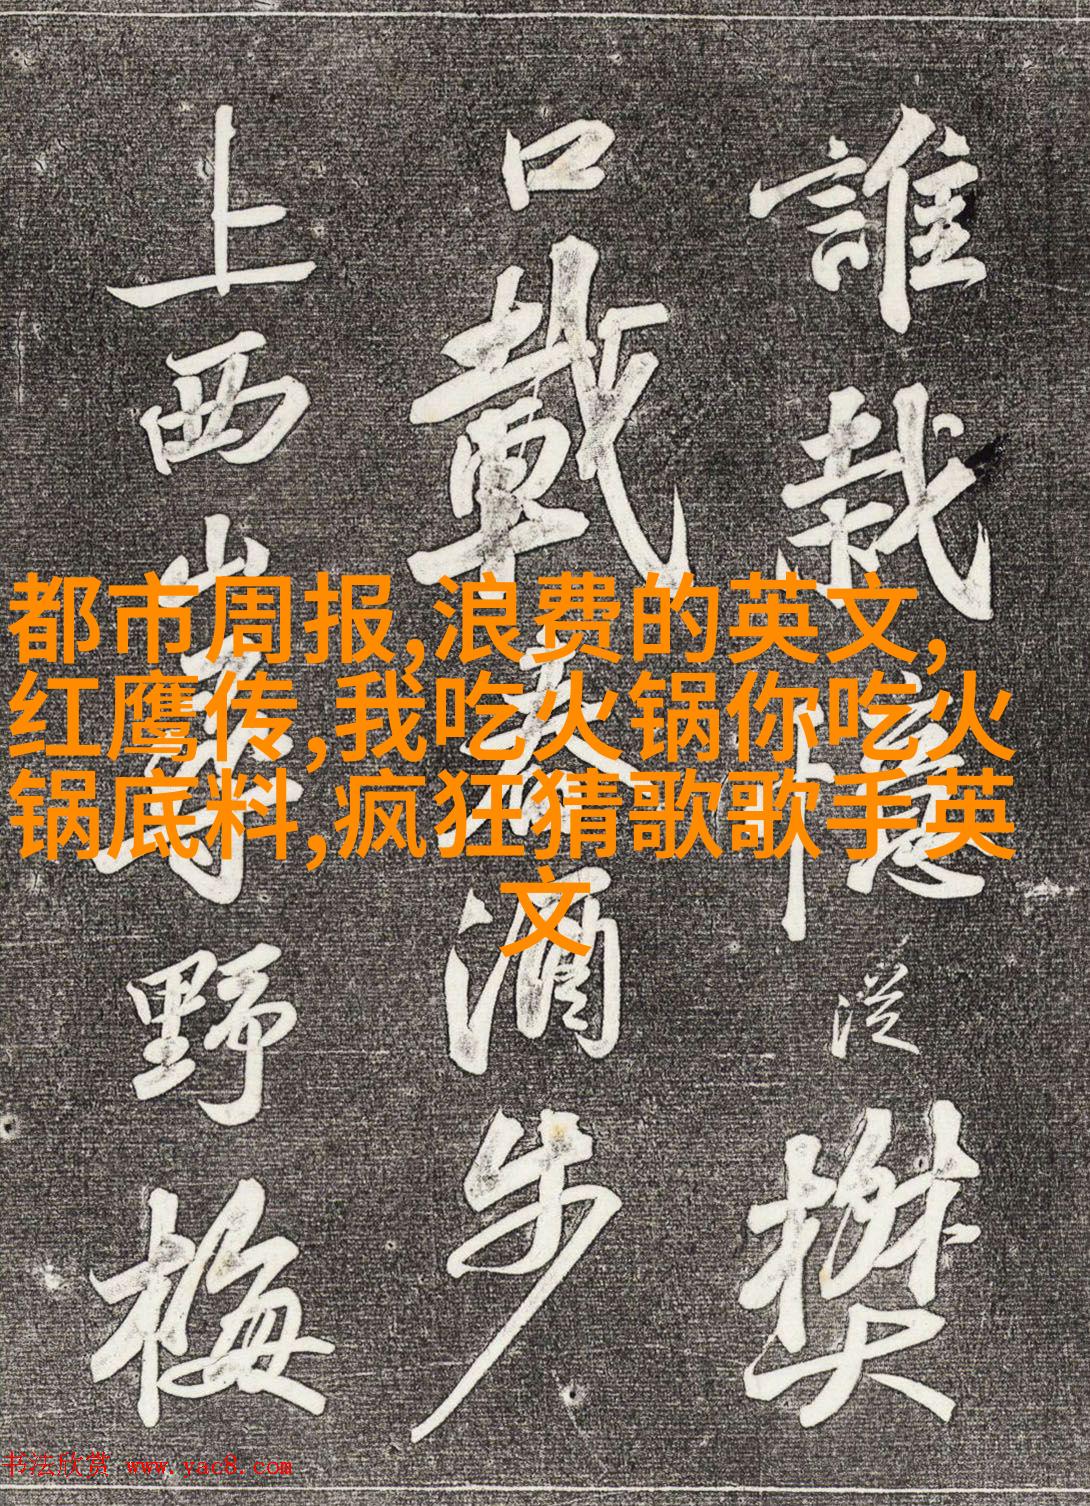 誰栽憶從樊
口載春酒步
上西山尋野梅
都市周报,浪费的英文,
红鹰传,我吃火锅你吃火
锅底料,疯狂猜歌歌手英
文
书法欣赏 www.yac8.com